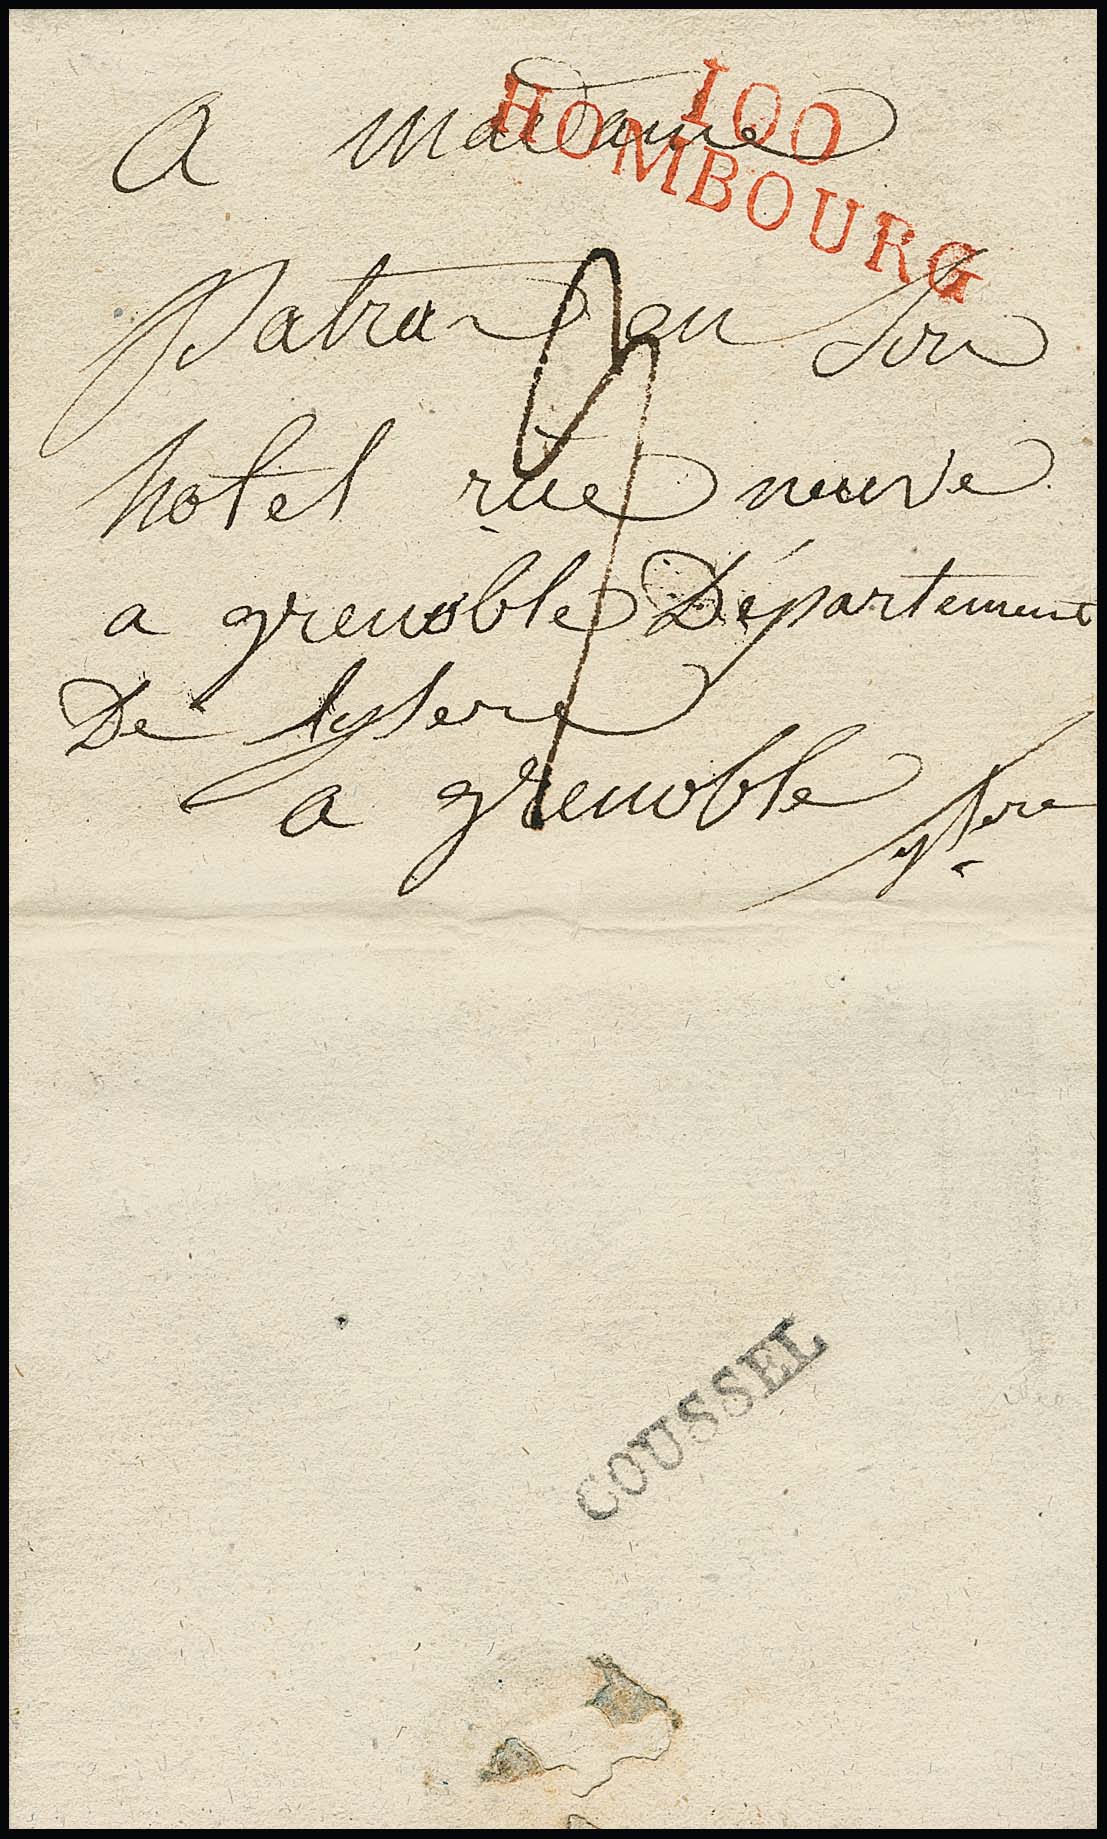 100
HOMBOURG
A madame
Patra en Son
hotel rue neuve
a grenoble Département
De lysere
a grenoble
ysere
COUSSEL